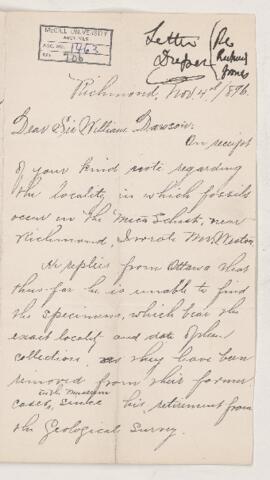 McGILL UNIVERSITY
ARCHIVES
ACC. NO. 1463
REF.
Letter
Draper
(Re
Richmond, Nov 4th/1896.
Dear Sir William Dawson:
On receipt
of your kind note regarding
the locality in which fossils
occur in the Mica Schist, near
Richmond, I wrote Mr. Weston.
He replies from Ottawa that
thus far he is unable to find
the specimens, which bear the
exact locality and date of their
collection, as they have been
removed from their former
in the Museum
cases, since his retirement from
the Geological Survey.